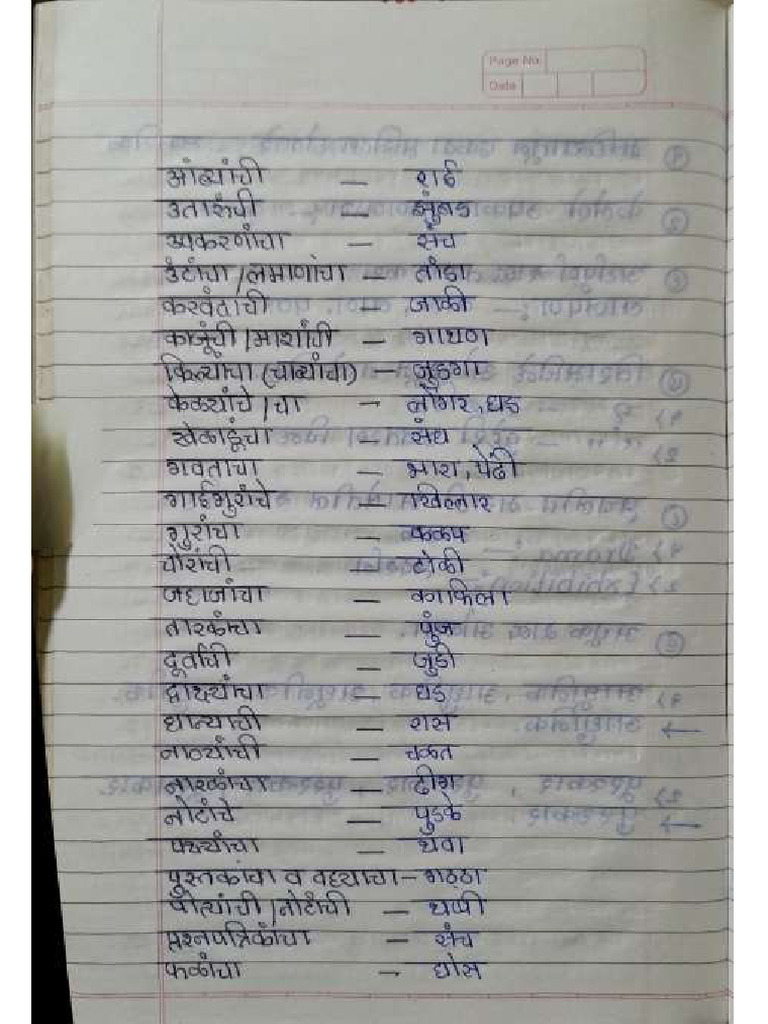 Page No.
Date
आंब्यांची — राई
उतारूंची — झुंबड
उपकरणांचा — संच
उंटांचा / लमाणांचा — तांडा
करवंदाची — जाळी
काजूंची / माशांची — गाथण
किल्यांचा (चाव्यांचा) — जुडगा
केळ्यांचे / चा — लोंगर, घड
खेळाडूंचा — संघ
गवताचा — भारा, पेंढी
गाईगुरांचे — खिल्लार
गुरांचा — कळप
चोरांची — टोळी
जहाजांचा — काफिला
तारकांचा — पुंज
दूर्वांची — जुडी
द्राक्ष्यांचा — घड
धान्याची — रास
नाण्यांची — चळत
नारळांचा — ढीग
नोटांचे — पुडके
पक्ष्यांचा — थवा
पुस्तकांचा व वह्याचा — गठ्ठा
पोत्यांची / नोटांची — थप्पी
प्रश्नपत्रिकांचा — संच
फळांचा — घोस